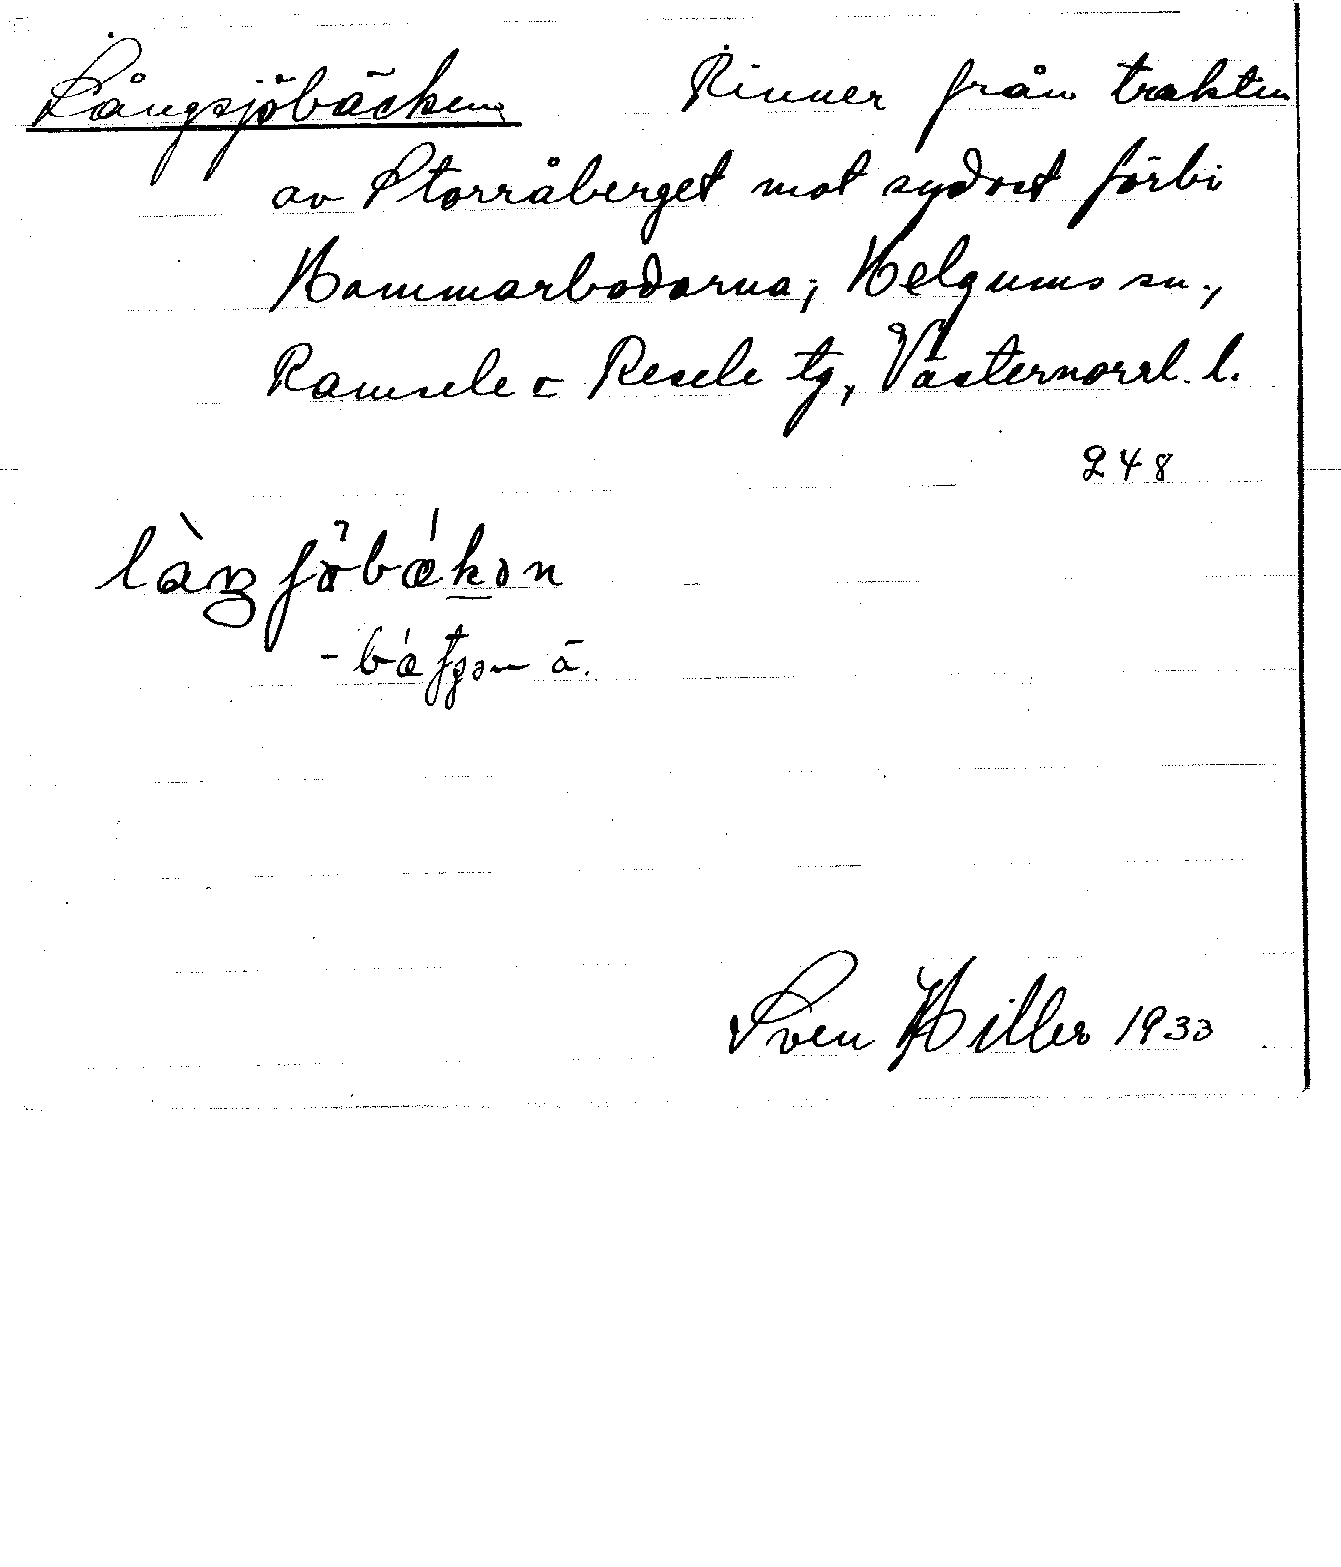 Långsjöbäcken Rinner från trakten
av Storråberget mot sydost förbi
Hammarbodarna; Helgums sn.,
Ramsele o Resele tg, Västernorrl. l.
248
Sven Hiller 1933